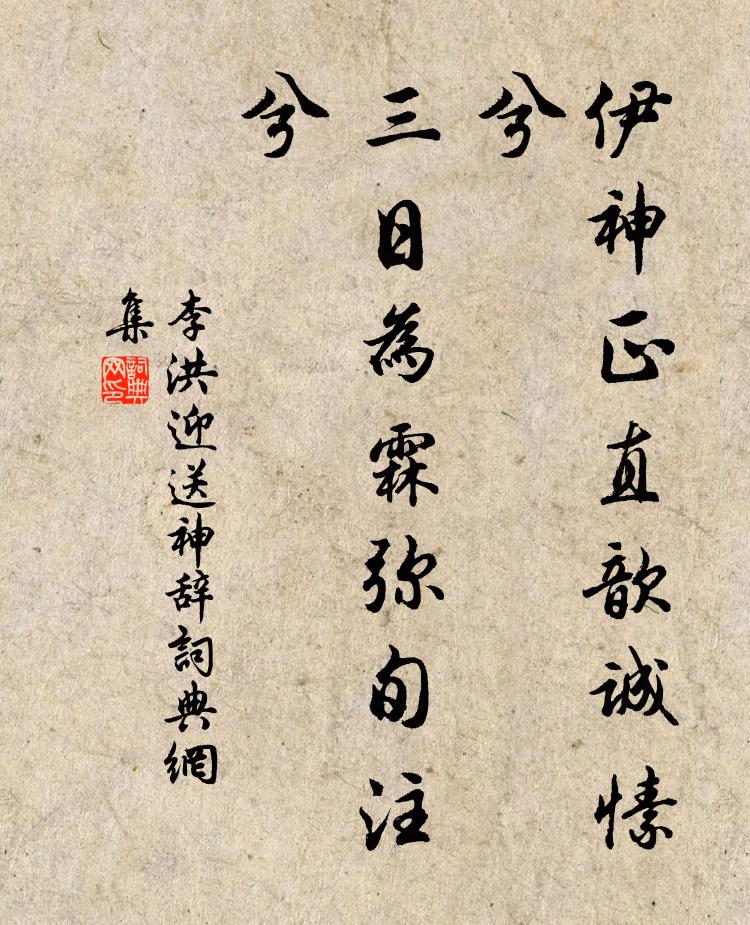 伊神正直歆誠愫
兮
三日為霖弥旬注
兮
李洪迎送神辞詞典網
集
詞典
网印